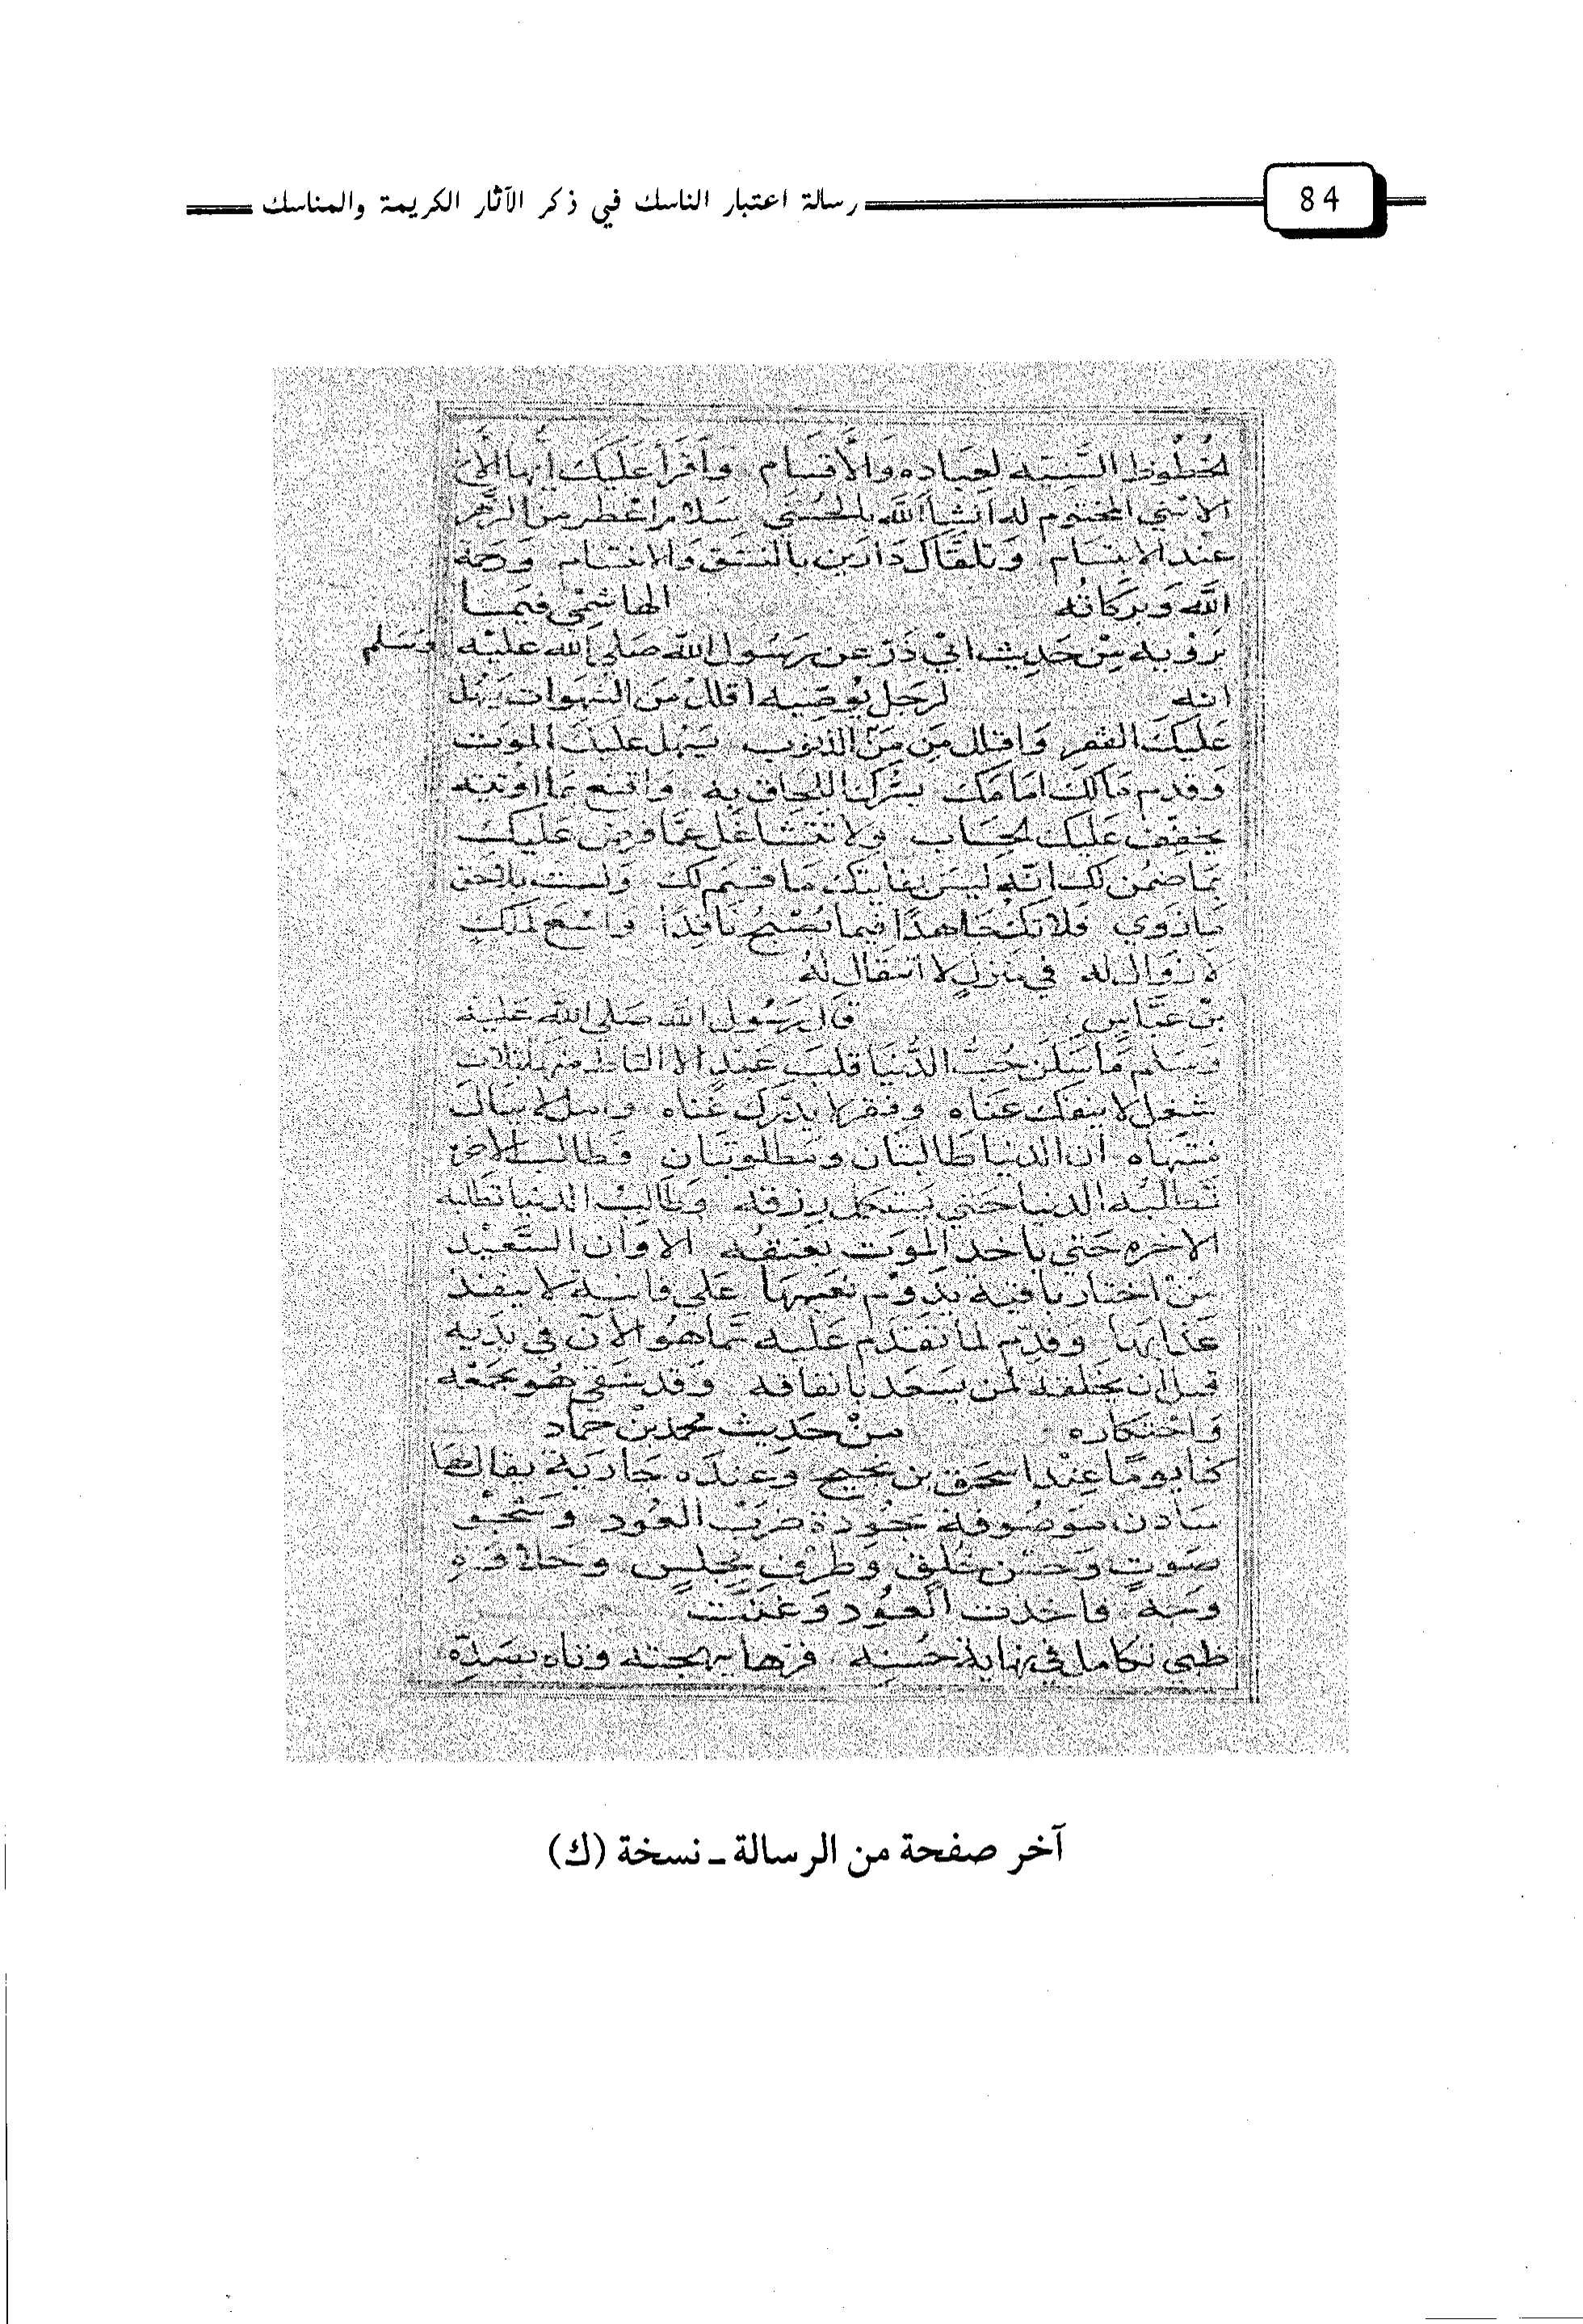 84
رسالة اعتبار الناسك في ذكر الآثار الكريمة والمناسك
لحظوظ السَّنِيّه لعِبَاده وَالأَقسَام وَأقرَأ عَلَيكَ أيها الأخ
عند الابتسَام وتلقاك دَارَين بالنشق والاختسام ورحمة
الله وَبَركَاتُه الهاشِمِي فيمَا
يَرويه مِن حَديث ابي ذَرّ عن رَسُول الله صَلي الله عليْه وَسَلم
انه لرَجل يُوصِيه أقلل مَن الشهَوات يَسهُل
عَليكَ الفقر وَاقلل مَن مَنَ الذنوب يَسهُل عَليكَ الموَت
وَقدم مَالكَ امَامَك يسُرك اللحَاق به وَاقنع بمَا اوُتيته
يخفف عَليك الحِسَاب ولا تتشاغَل عَمَّا فرِض عَليك
بمَا ضمُن لك انه ليسَ بفايتك مَا قسِم لك وَلست بلاحق
مَا زوي فلا تكُ جَاهدًا فيما يُصْبحُ نَافِدًا وَاسْعَ لمُلكٍ
لا زَوال له في مَنزلٍ لا انتقال لهُ
بنْ عَبَّاسٍ قال رَسُول الله صَلي الله عَليه
وَسَلم مَا سَكَن حُبُّ الدُّنيَا قلبَ عَبْدٍ الا التاط منه بثلاث
شغل لا ينفك عَناه وفقر لا يدْرَك غناه وامل لا ينال
منتهَاه ان الدنيا طَالبتان ومَطلوبَتان فطالب الاخره
تطلبُه الدنيا حَتي يستكمل رزقه وَطَالبُ الدنيا تطلبه
الاخره حَتي ياخد الموَت بعنقه الا وَان السَّعيْد
مَنْ اختار باقية يَدوْم نعَيمهَا عَلي فانيَة لا ينفذ
عَذابهَا وَقدّم لما تقدم عَليه ممَّا هُو الآن في يدَيه
قبل ان يخَلفه لمن يَسعَد بانفاقه وَقد شقي هُو بجمَعْه
وَاحْتكاره منْ حَديث محمد بن حماد
كنا يومًا عِند اسحق بن نجيح وَعندَه جَاريَة يقال لهَا
شادن موصُوفة بجُودة ضرَب العُود وشجْو
صَوتٍ وَحسْن خلقٍ وَظرْفِ مجَلسٍ وحَلاوَة
وَجه فاخذت العوُد وَغنَّت
ظبي تكامل في نهايَة حُسْنِه فزها ببهجته وَتاه بصَدِّه
آخر صفحة من الرسالة ـ نسخة (ك)